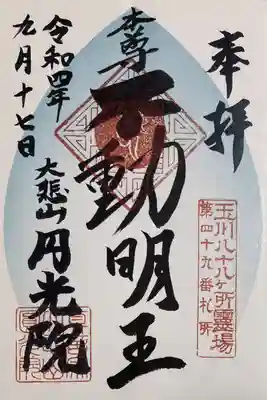 奉拝
玉川八十八ヶ所霊場
第四十九番札所
本尊
不動明王
大悲山
円光院
令和四年
九月十七日